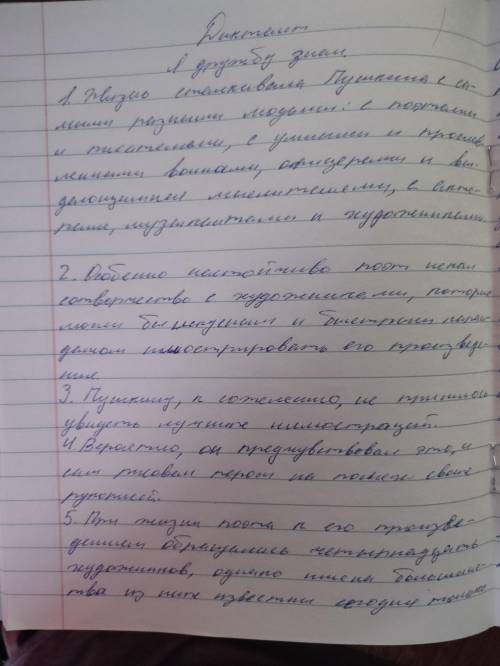 Диктант
Я дружбу знал.
1. Жизнь сталкивала Пушкина с са-
мыми разными людьми: с поэтами
и писателями, с умными и просве-
щенными воинами, офицерами и вы-
дающимися мыслителями, с актё-
рами, музыкантами и художниками.
2. Особенно настойчиво поэт искал
сотворчество с художниками, которые
могли бы искусным и быстрым
иллюстрировать его произведе-
ние
3. Пушкину, к сожелению, не пришлось
увидеть лучших иллюстраций.
4. Вероятно, он предчувствовал это, и
сам рисовал пером на полях своих
рукописей.
5. При жизни поэта к его произве-
дениям обращались четырнадцать
художников, однако имена большинс-
тва из них известны сегодня только